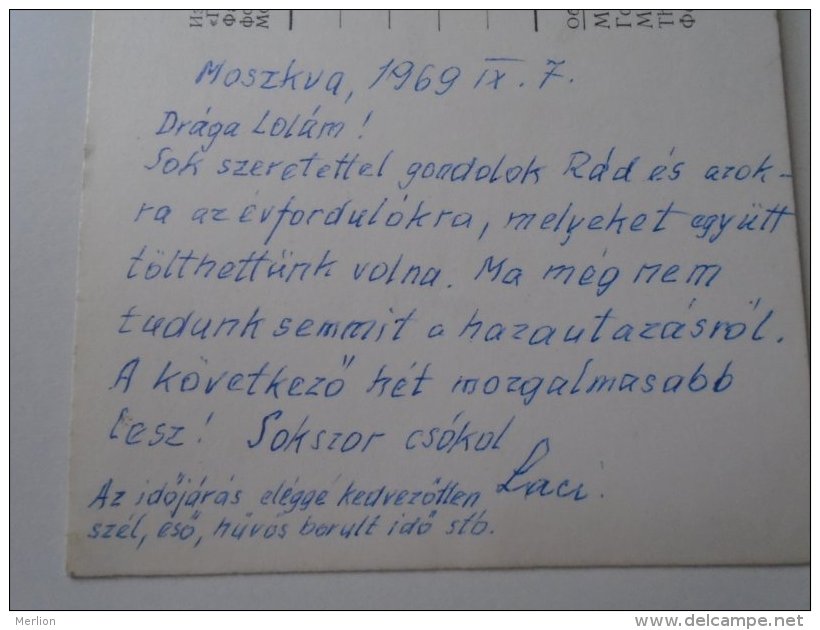 Moszkva, 1969 IX. 7.
Drága Lolám!
Sok szeretettel gondolok Rád és azok-
ra az évfordulókra, melyeket együtt
tölthettünk volna. Ma még nem
tudunk semmit a hazautazásról.
A következő hét mozgalmasabb
lesz! Sokszor csókol
Laci.
Az időjárás eléggé kedvezőtlen
szél, eső, hűvös borult idő stb.
Merlion
delcampe.net